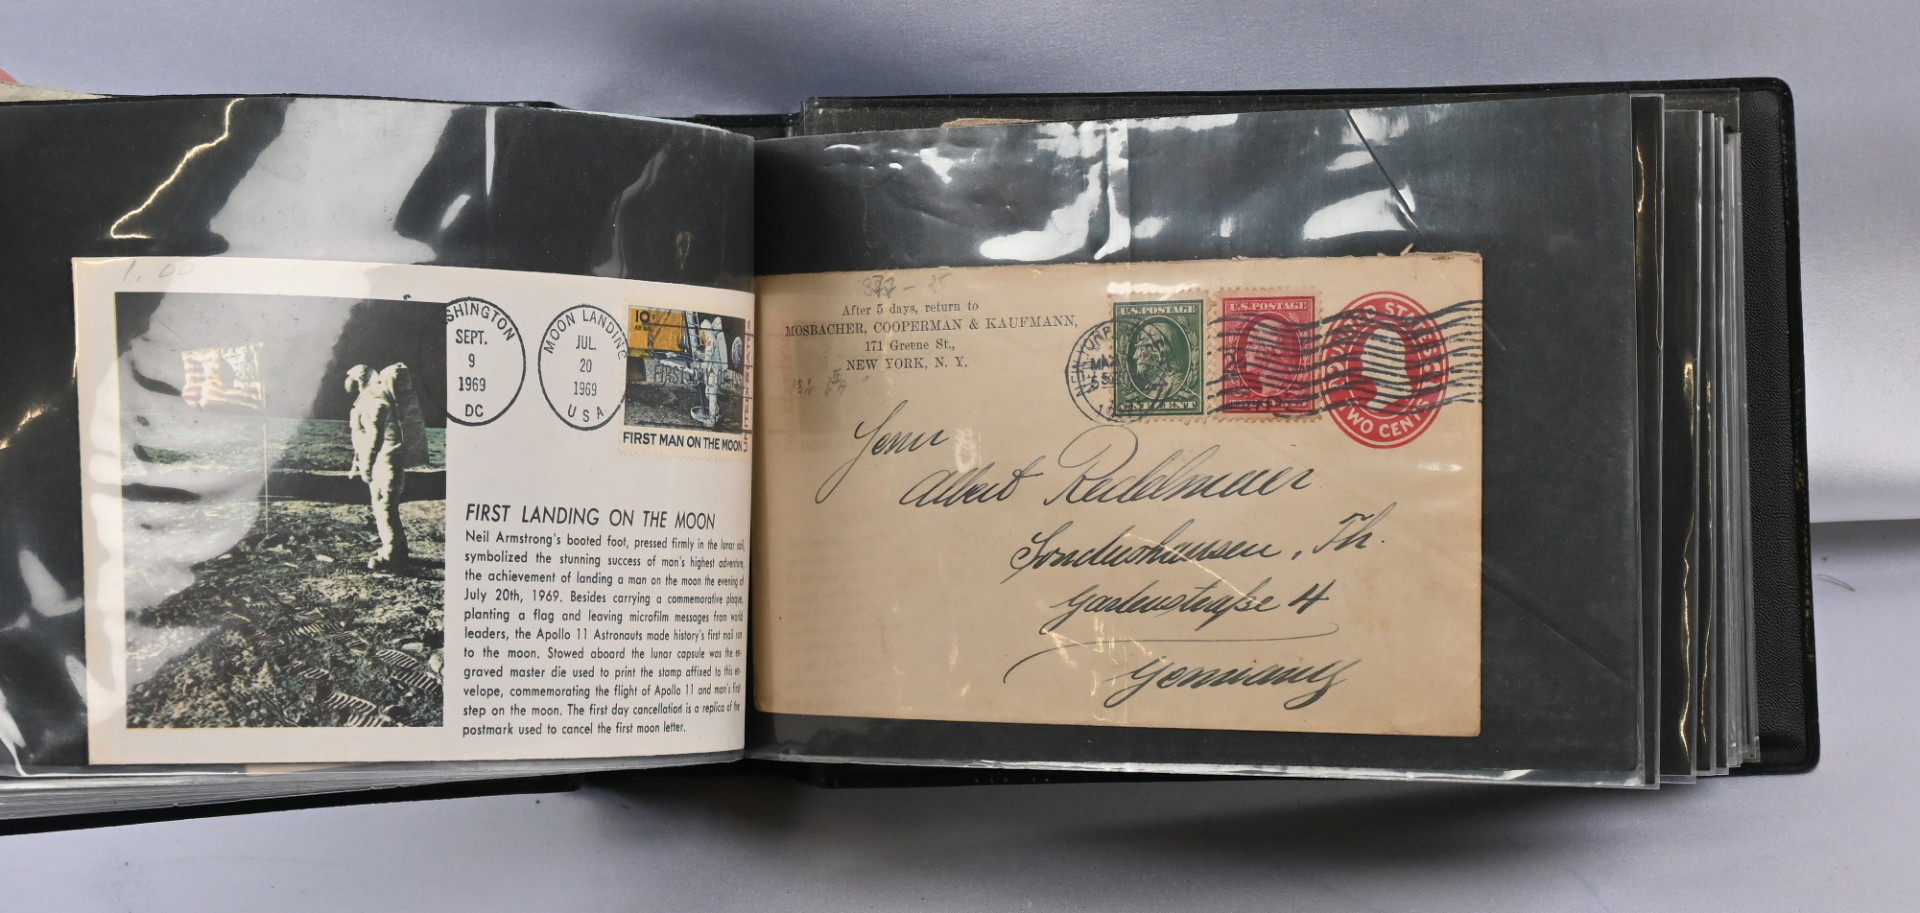 1.00
SHINGTON
SEPT.
9
1969
DC
MOON LANDING
JUL.
20
1969
USA
10¢
FIRST MAN ON THE MOON
UNITED STATES
FIRST LANDING ON THE MOON
Neil Armstrong's booted foot, pressed firmly in the lunar soil,
symbolized the stunning success of man's highest adventure,
the achievement of landing a man on the moon the evening of
July 20th, 1969. Besides carrying a commemorative plaque,
planting a flag and leaving microfilm messages from world
leaders, the Apollo 11 Astronauts made history's first mail run
to the moon. Stowed aboard the lunar capsule was the en-
graved master die used to print the stamp affixed to this en-
velope, commemorating the flight of Apollo 11 and man's first
step on the moon. The first day cancellation is a replica of the
postmark used to cancel the first moon letter.
After 5 days, return to
MOSBACHER, COOPERMAN & KAUFMANN,
171 Greene St.,
NEW YORK, N. Y.
U.S. POSTAGE
U.S. POSTAGE
UNITED STATES
TWO CENTS
NEW YORK
Herrn
Albert
Sondershausen, Th.
Gartenstraße 4
Germany